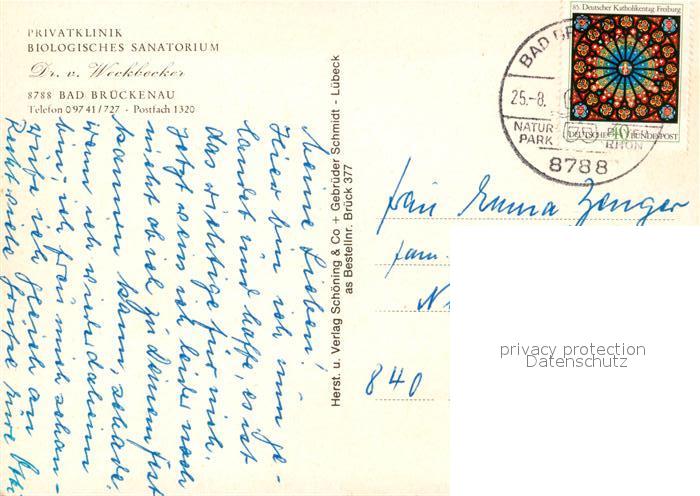 PRIVATKLINIK
BIOLOGISCHES SANATORIUM
Dr. v. Weckbecker
8788 BAD BRÜCKENAU
Telefon 09741/727 · Postfach 1320
Meine Lieben!
Hier bin ich nun ge-
landet und hoffe, es ist
das richtige für mich.
Jetzt weis ich leider noch
nicht ob ich zu Deinem Fest
kommen kann, schade.
wenn ich wieder daheim
bin - ich freu mich schon -
rufe ich gleich an
Recht viele Grüße Eure
Herst. u. Verlag Schöning & Co + Gebrüder Schmidt - Lübeck
as Bestellnr. Brück 377
85. Deutscher Katholikentag Freiburg
40
DEUTSCHE BUNDESPOST
BAD
25.-8.
NATUR-
PARK
RHÖN
8788
Frau Emma Zenger
Fam.
N
840
privacy protection
Datenschutz